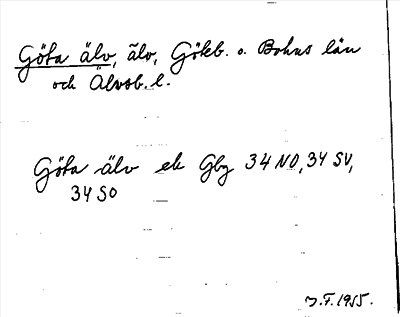 Göta älv, älv, Göteb. o. Bohus län
och Älvsb. l.
Göta älv ek Gbg 34 NO, 34 SV,
34 SO
J.F. 1955.